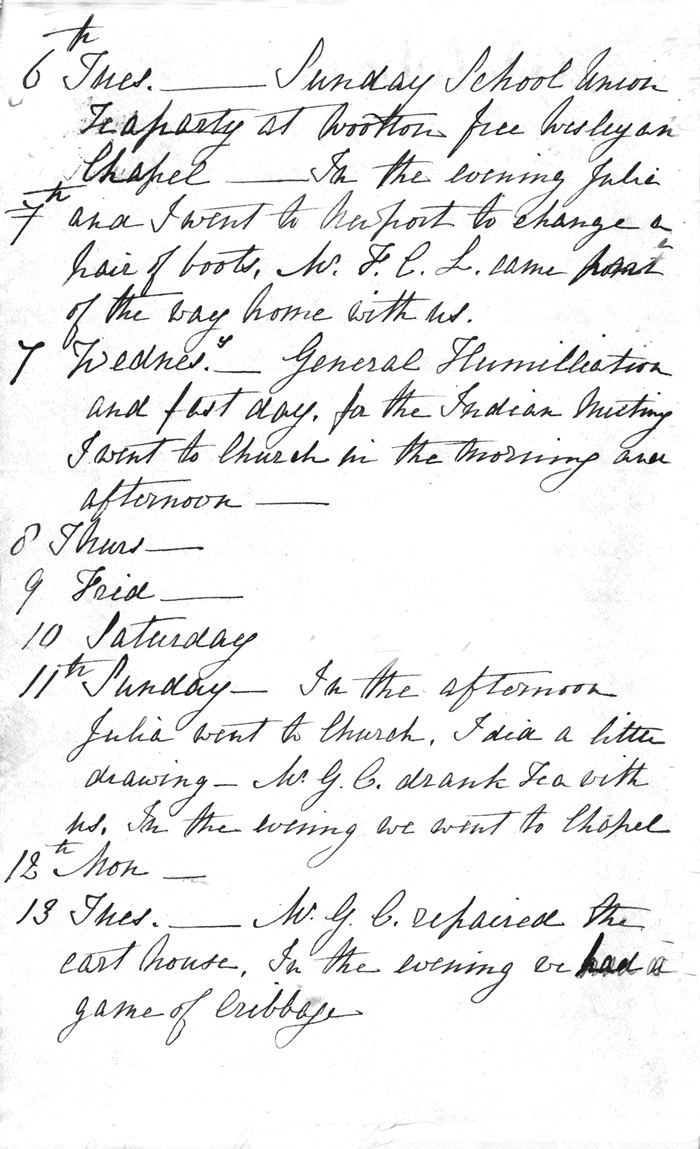 6th Tues. — Sunday School Union
Teaparty at Wootton free Wesleyan
Chapel — In the evening Julia
7th and I went to Newport to change a
pair of boots. Mr. F. C. L. came part
of the way home with us.
7 Wednes.y — General Humilliation
and fast day. for the Indian Mutiny
I went to Church in the morning and
afternoon —
8 Thurs —
9 Frid —
10 Saturday
11th Sunday — In the afternoon
Julia went to Church. I did a little
drawing — Mr. G. C. drank Tea with
us. In the evening we went to Chapel
12th Mon —
13 Tues. — Mr. G. C. repaired the
cart house. In the evening we had a
game of Cribbage